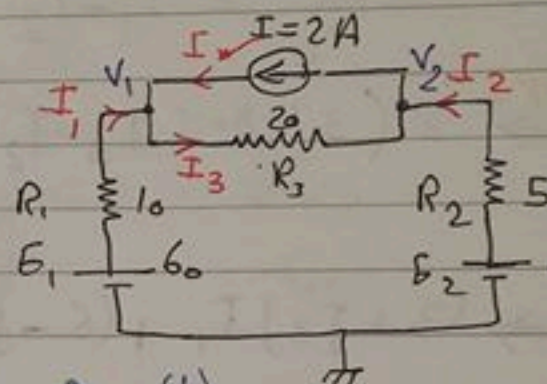 I I=2A
V₁ V₂ I₂
I₁ 20
I₃ R₃
R₁ 10 R₂ 5
E₁ 60 E₂